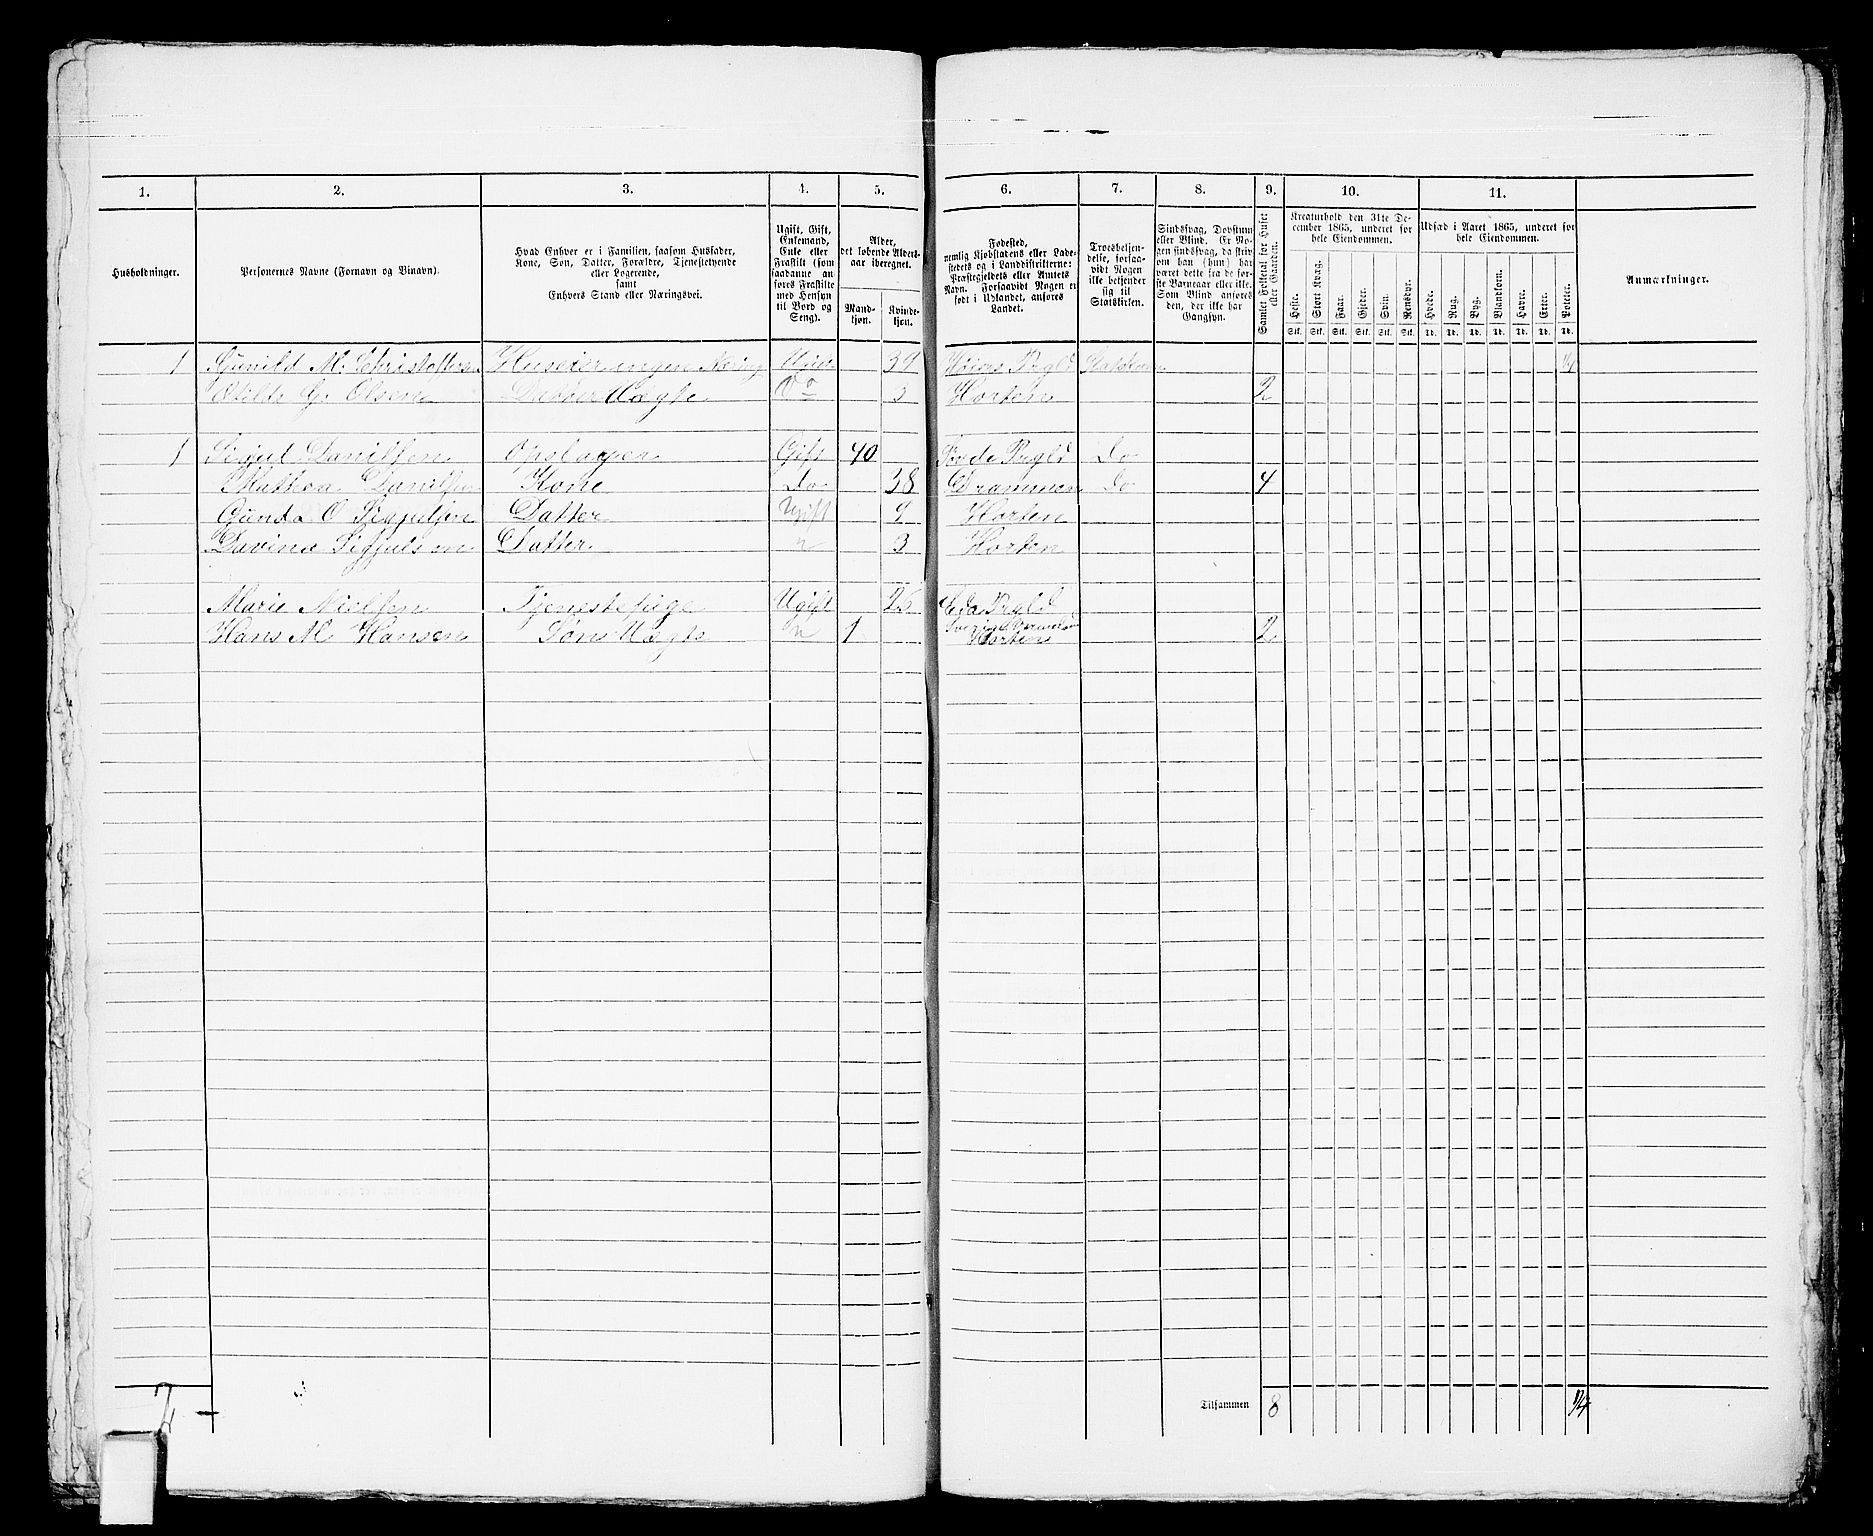 1. 2. 3. 4. 5. 6. 7. 8. 9. 10. 11.
Husholdninger.
Personernes Navne (Fornavn og Binavn).
Hvad Enhver er i Familien, saasom Husfader,
Kone, Søn, Datter, Forældre, Tjenestetyende
eller Logerende,
samt
Enhvers Stand eller Næringsvei.
Ugift, Gift,
Enkemand,
Enke eller
Fraskilt (som
saadanne an
føres Fraskilte
med Hensyn
til Bord og
Seng).
Alder,
det løbende Alders-
aar iberegnet.
Mand-
kjøn.
Kvinde-
kjøn.
Fødested,
nemlig Kjøbstadens eller Lade-
stedets og i Landdistrikterne:
Præstegjeldets eller Amtets
Navn. Forsaavidt Nogen er
født i Udlandet, anføres
Landet.
Troesbekjen-
delse, forsaa-
vidt Nogen
ikke bekjender
sig til
Statskirken.
Sindssvag, Døvstum
eller Blind. Er No-
gen sindssvag, da skriv
om han (hun) har
været dette fra de før-
ste Barneaar eller ikke.
Som Blind anføres
den, der ikke har
Gangsyn.
Samlet Folketal for Huset
eller Gaarden.
Kreaturhold den 31te De-
cember 1865, underet for
hele Eiendommen.
Heste. Stort Kvæg. Faar. Gjeder. Svin. Rensdyr.
Stk. Stk. Stk. Stk. Stk. Stk.
Udsæd i Aaret 1865, underet for
hele Eiendommen.
Hvede. Rug. Byg. Blandkorn. Havre. Erter. Poteter.
Td. Td. Td. Td. Td. Td. Td.
Anmærkninger.
1 Gunild M. Huseier ingen Næring Ugift 39 1/4
G. Olsen Datter Uægte Do 3 Horten 2
1 Danilsen Opslager Gift 40 Prgld Do
Danilsen Kone Do 38 Drammen Do 4
Gunda O Datter Ugift 9 Horten
Davina Datter 3 Horten
Marie Nielsen Tjenestepige Ugift 26 Eda Prgld
Hans M Hansen Søn Uægte 1 Horten 2
2
Tilsammen 8 1/4